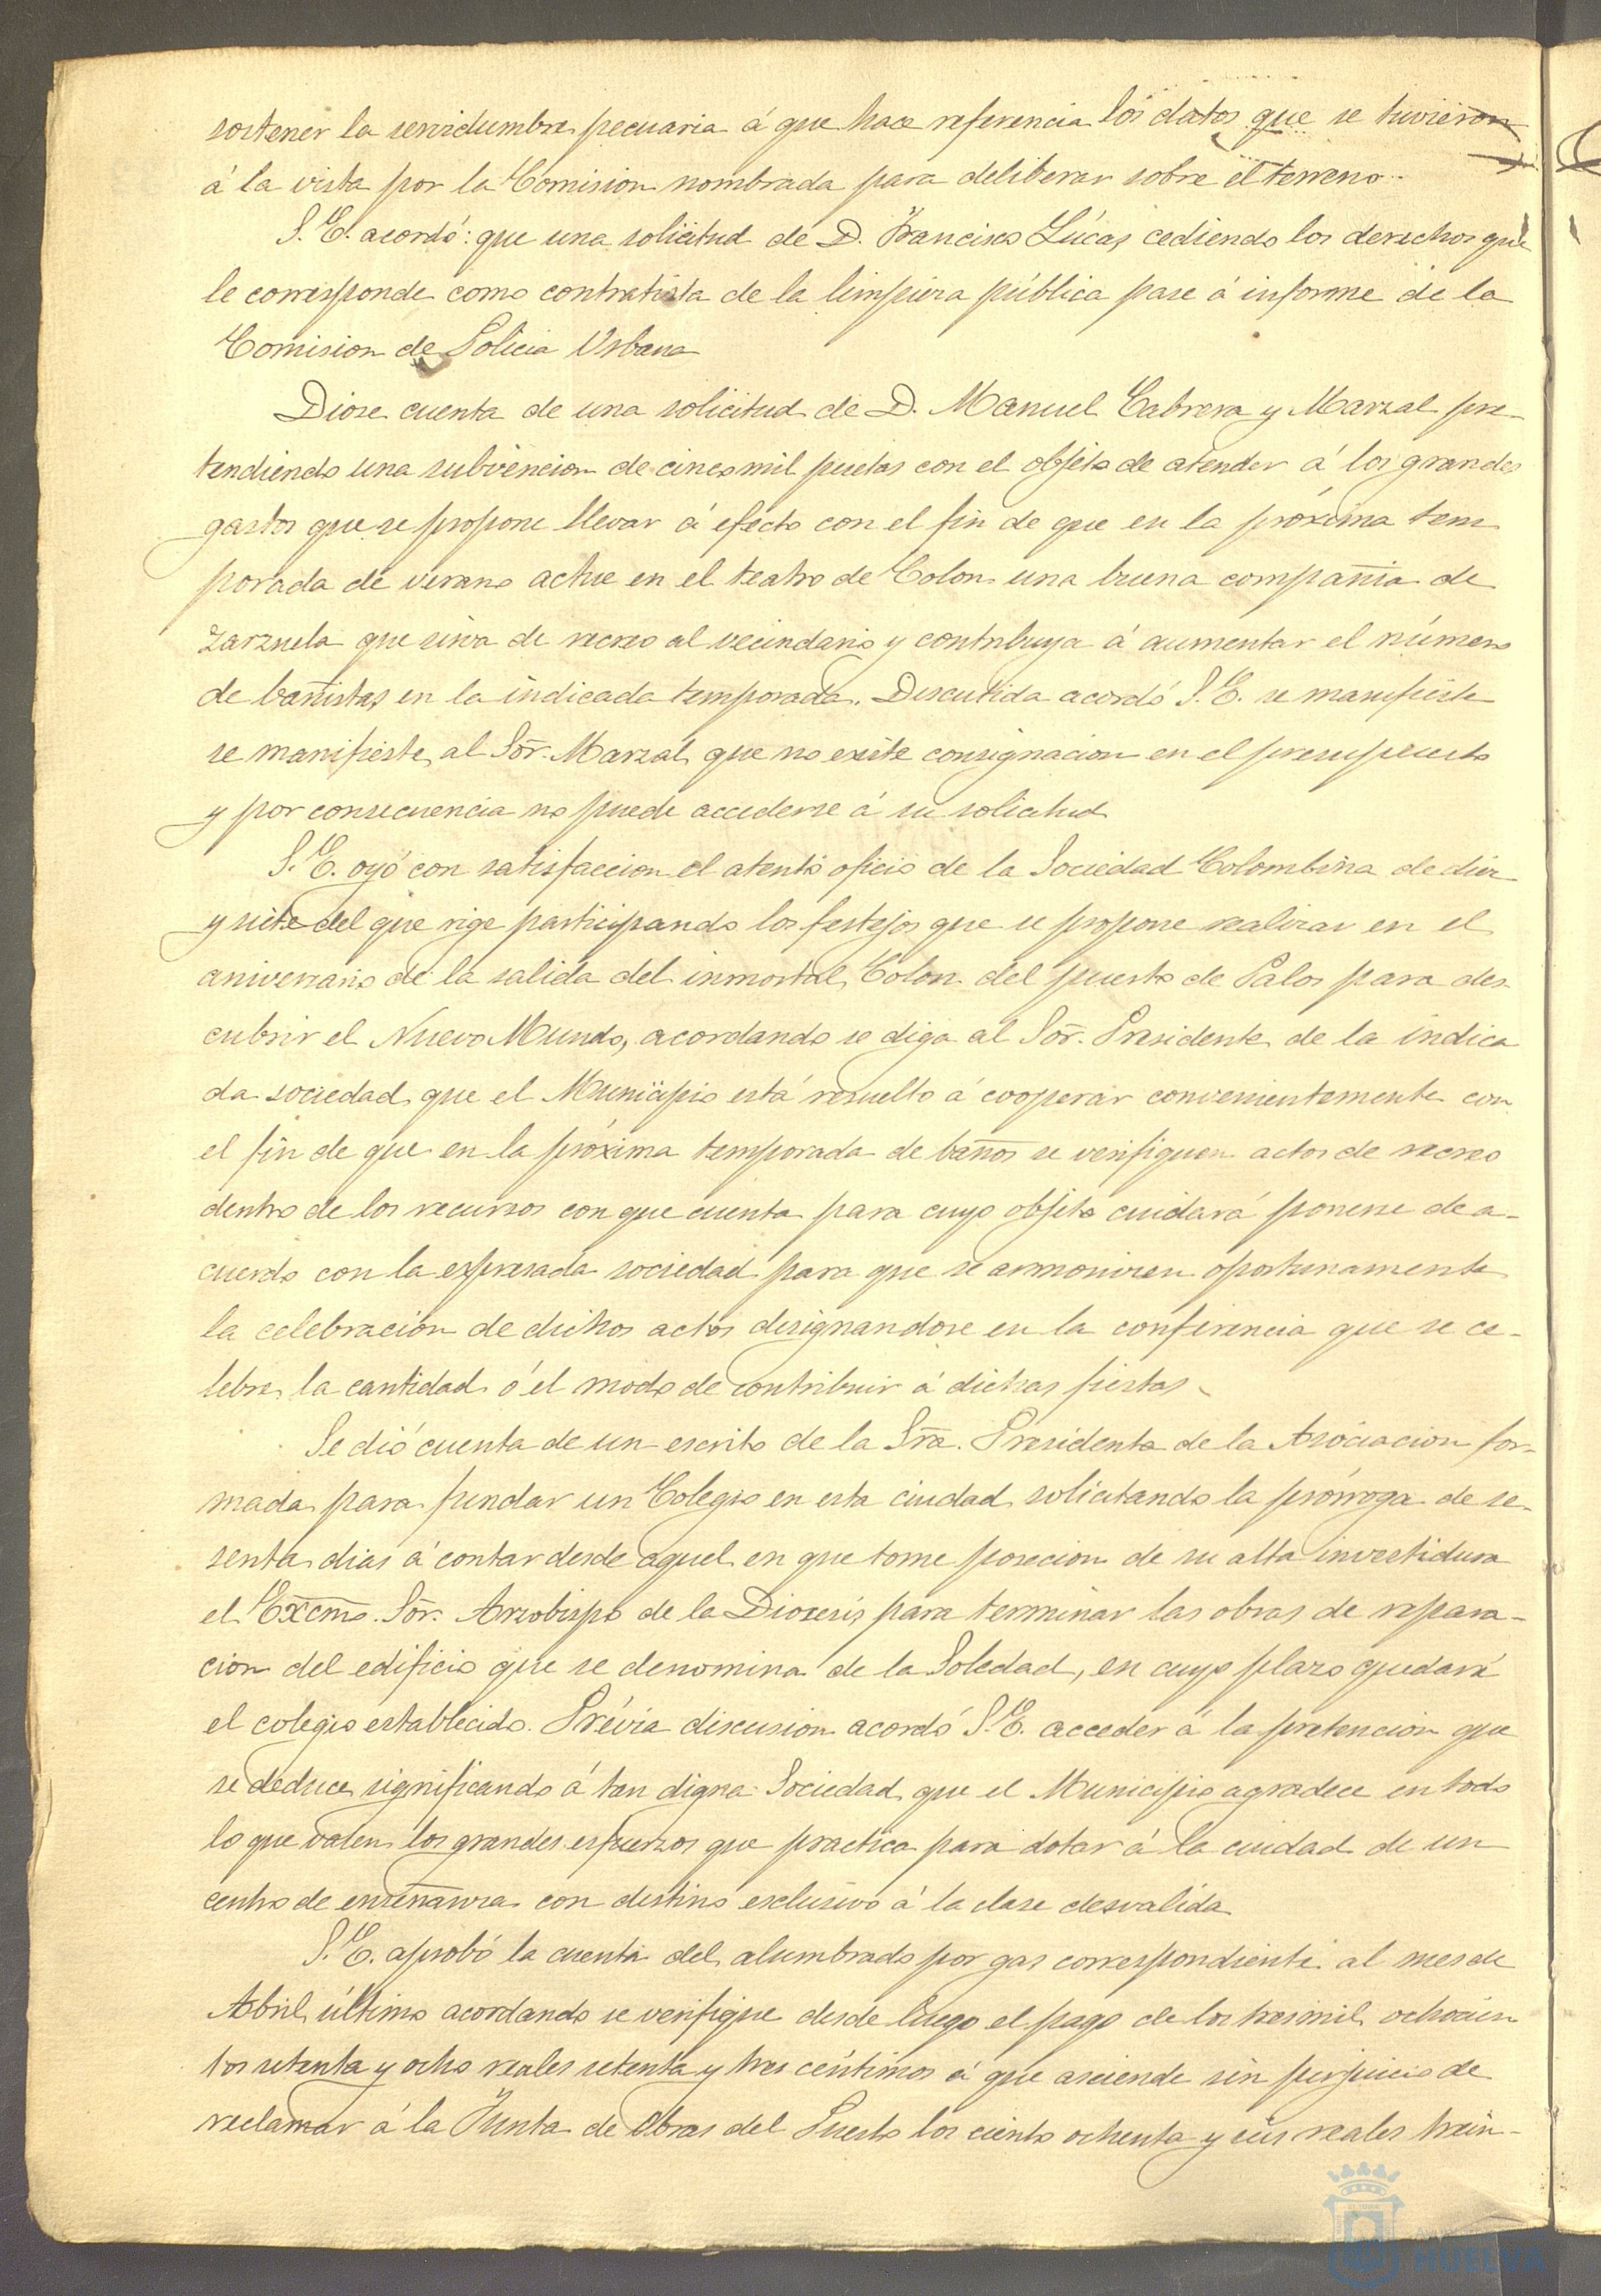 sostener la servidumbre pecuaria á que hace referencia los datos que se tuvieron
á la vista por la Comision nombrada para deliberar sobre el terreno.
S. E. acordó: que una solicitud de D. Francisco Lúcas cediendo los derechos que
le corresponde como contratista de la limpieza pública pase á informe de la
Comision de Policia Urbana
Diose cuenta de una solicitud de D. Manuel Cabrera y Marzal pre-
tendiendo una subvencion de cinco mil pesetas con el objeto de atender á los grandes
gastos que se propone llevar á efecto con el fin de que en la próxima tem
porada de verano actue en el teatro de Colon una buena compañia de
zarzuela que sirva de recreo al vecindario y contribuya á aumentar el número
de bañistas en la indicada temporada. Discutida acordó S. E. se manifieste
se manifieste al Sor. Marzal que no existe consignacion en el presupuesto
y por consecuencia no puede accederse á su solicitud
S. E. oyó con satisfaccion el atento oficio de la Sociedad Colombina de diez
y siete del que rige participando los festejos que se propone realizar en el
aniversario de la salida del inmortal Colon del puerto de Palos para des
cubrir el Nuevo Mundo, acordando se diga al Sor. Presidente de la indica
da sociedad que el Municipio está resuelto á cooperar convenientemente con
el fin de que en la próxima temporada de baños se verifiquen actos de recreo
dentro de los recursos con que cuenta para cuyo objeto cuidará ponerse de a-
cuerdo con la espresada sociedad para que se armonicen oportunamente
la celebracion de dichos actos designandose en la conferencia que se ce-
lebre la cantidad ó el modo de contribuir á dichas fiestas.
Se dió cuenta de un escrito de la Sra. Presidenta de la Asociacion for-
mada para fundar un Colegio en esta ciudad solicitando la prórroga de se-
senta dias á contar desde aquel en que tome posecion de su alta investidura
el Excmo. Sor. Arzobispo de la Diocesis para terminar las obras de repara-
cion del edificio que se denomina de la Soledad, en cuyo plazo quedará
el colegio establecido. Prévia discusion acordó S. E. acceder á la pretencion que
se deduce significando á tan digna Sociedad que el Municipio agradece en todo
lo que valen los grandes esfuerzos que practica para dotar á la ciudad de un
centro de enseñanza con destino esclusivo á la clase desvalida
S. E. aprobó la cuenta del alumbrado por gas correspondiente al mes de
Abril último acordando se verifique desde luego el pago de los tres mil ochocien
tos setenta y ocho reales setenta y tres centimos á que asciende sin perjuicio de
reclamar á la Junta de Obras del Puerto los ciento ochenta y seis reales trein-
HUELVA